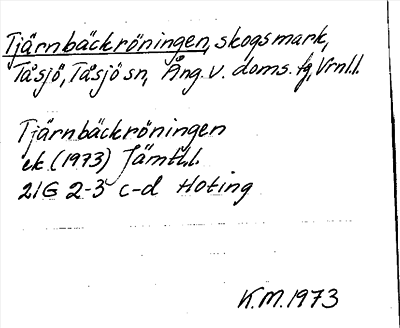 Tjärnbäckröningen, skogsmark,
Tåsjö, Tåsjö sn, Ång. v. doms. fg, Vrnl.l.
Tjärnbäckröningen
ek (1973) Jämtl.l.
21G 2-3 c-d Hoting
K.M. 1973